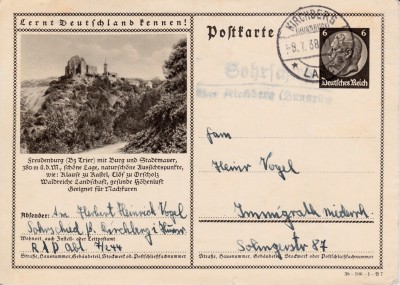 Lernt Deutschland kennen!
Postkarte
KIRCHBERG
-8.7.38
6 6
Deutsches Reich
Sohrsch
über Kirchberg (Hunsrück)
Freudenburg (Bz Trier) mit Burg und Stadtmauer,
380 m ü.d.M., schöne Lage, naturschöne Aussichtspunkte,
wie: Klause zu Kastel, Clöf zu Orscholz
Waldreiche Landschaft, gesunde Höhenluft
Geeignet für Nachkuren
Fam
Heinr Vogel
Immigrath
Solingerstr 87
Absender: Am Herbert Heinrich Vogel
Sohrschied b. Kirchberg i/Hunsr
Wohnort, auch Zustell- oder Leitpostamt
RAD Abt. 7/244
Straße, Hausnummer, Gebäudeteil, Stockwerk od. Postschließfachnummer
Straße, Hausnummer, Gebäudeteil, Stockwerk oder Postschließfachnummer